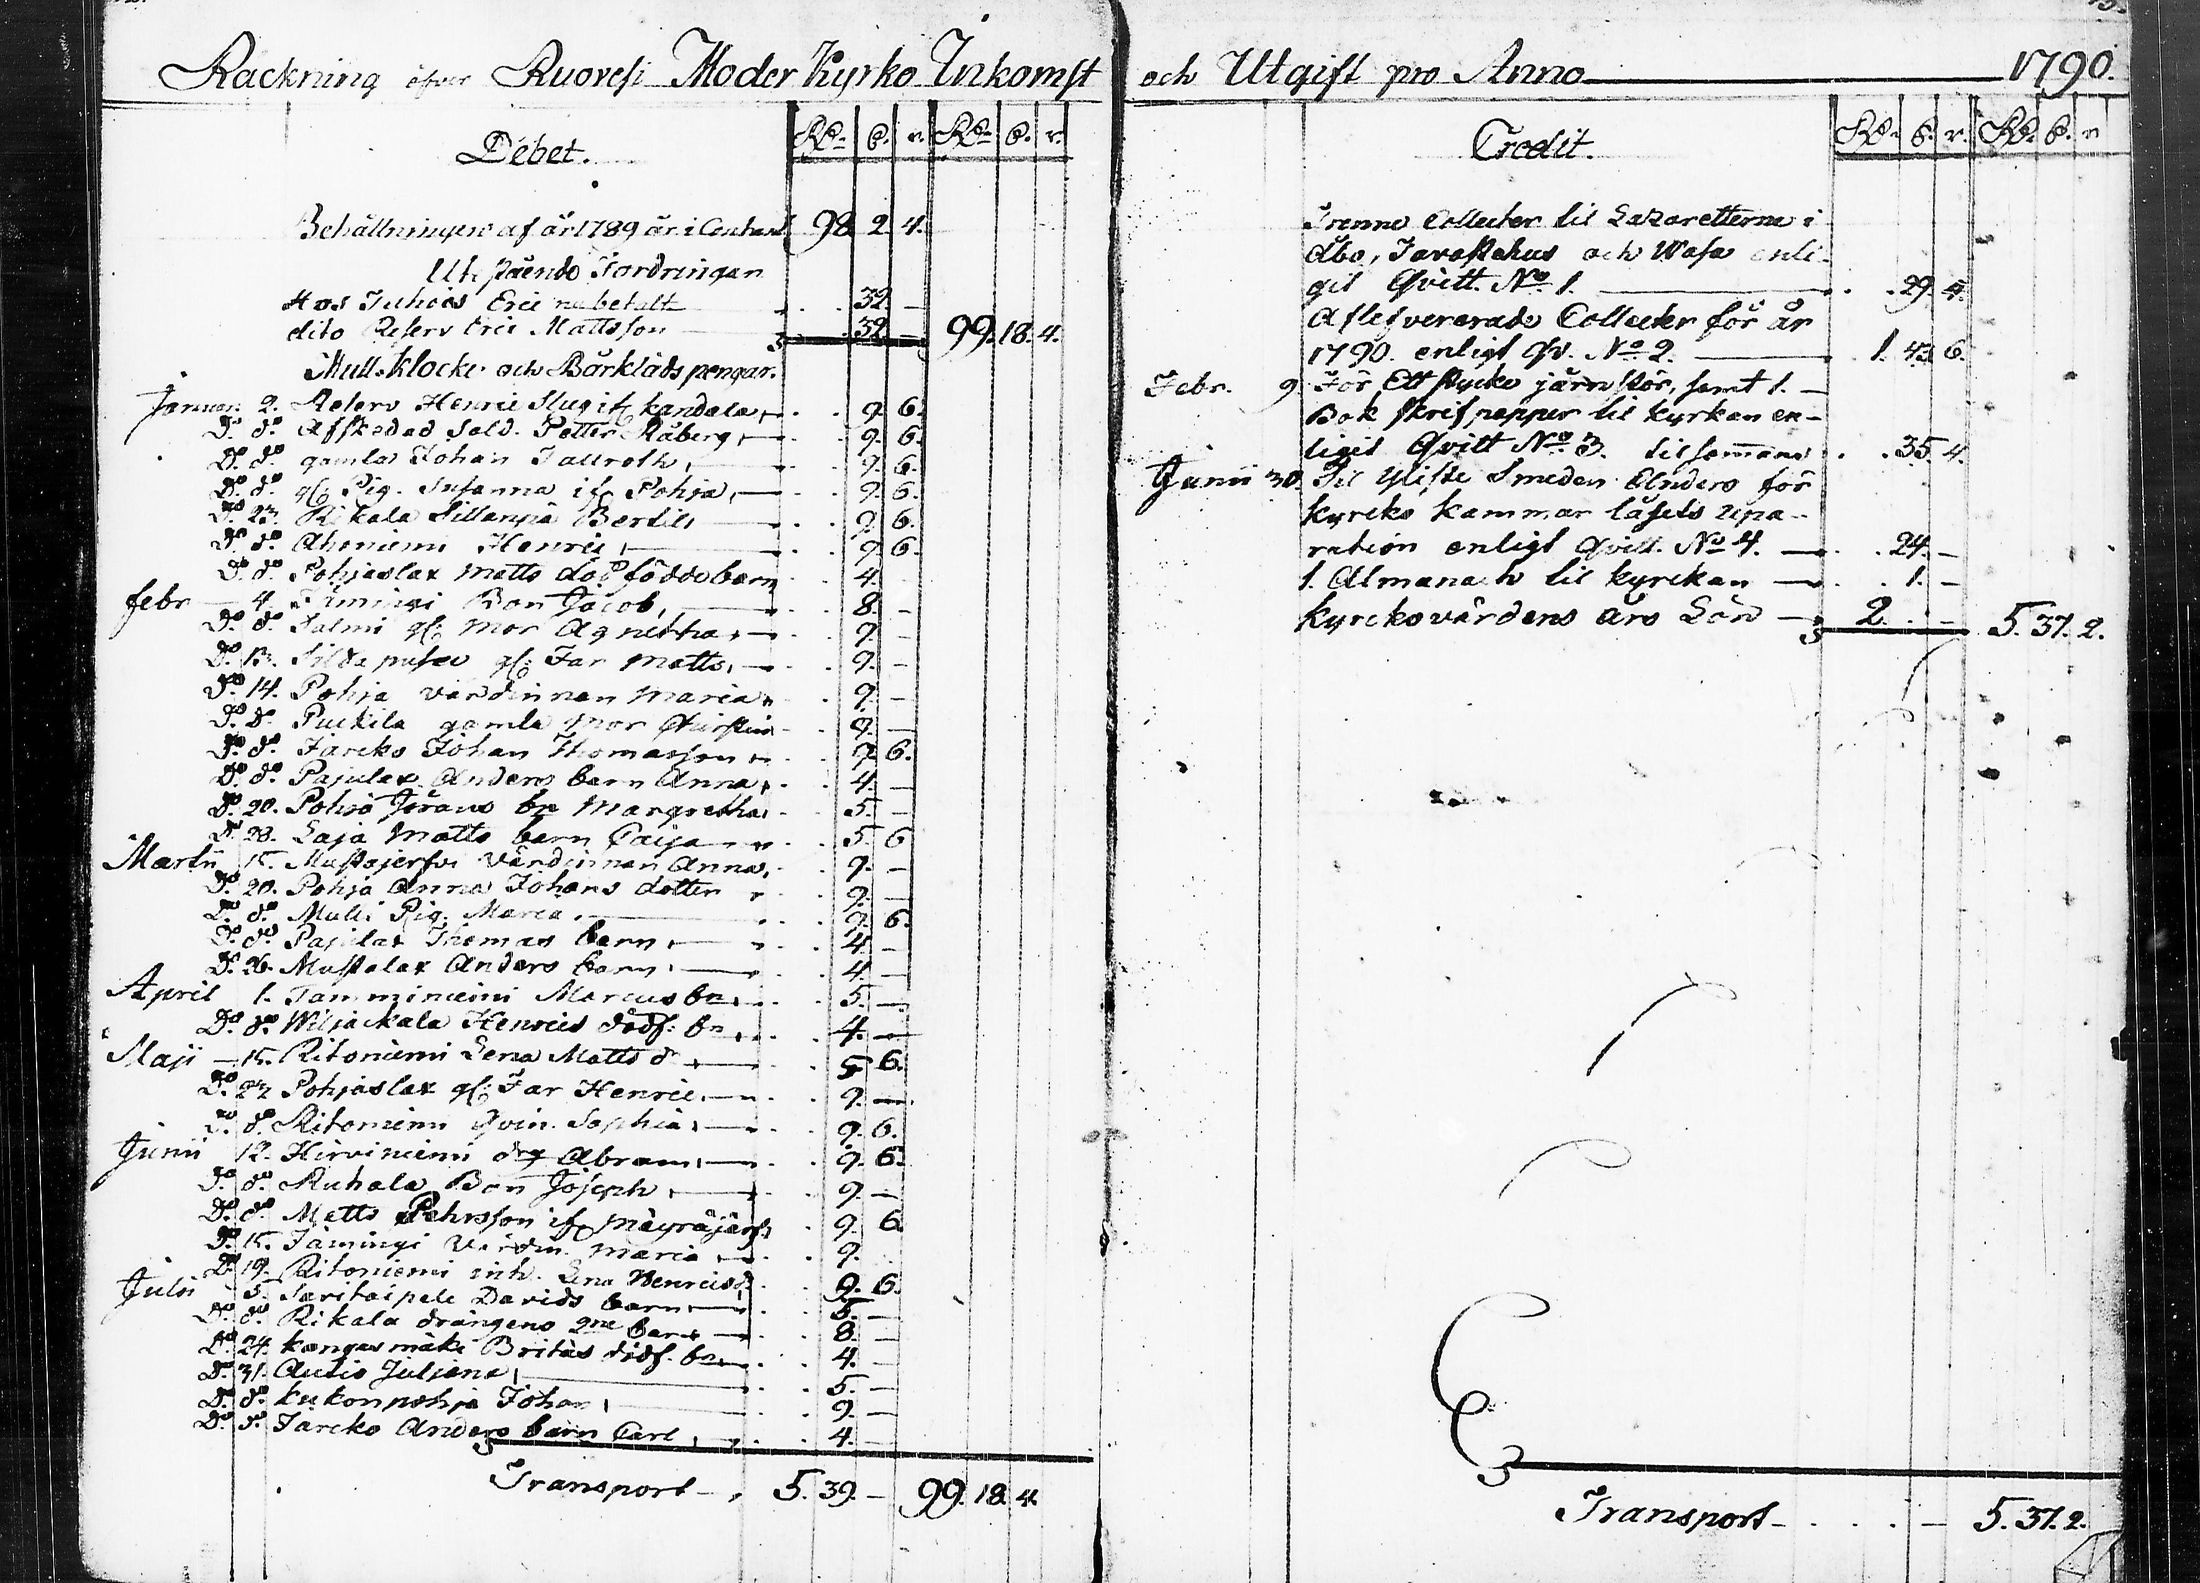 Räckning öfver Ruovesi Moder Kyrko Inkomst och Utgift pro Anno 1790.
Debet. Rd. s. r. Rd. s. r.
Behållningen af år 1789 är i Contant 98. 2. 4.
Utestående Fordringar
Hos Juhois Eric nu betalt 32. —
dito Reserv Eric Mattsson 32. — 99. 18. 4.
Mull- Klocke- och Bårklädspengar.
Januari 2. Reserv Henric Slug if. kandala, 9. 6.
Do. do. Afskedad Sold. Petter Råberg, 9. 6.
Do. do. gamla Johan Tallroth, 9. 6.
Do. do. gl. Pig. Susanna if. Pohja, 9. 6.
Do. 23. Rikala Sillanpä Bertil, 9. 6.
Do. do. Ahoniemi Henric, 9. 6.
Do. do. Pohjaslax Matts död födde barn 4.
febr 4. Jämingi Bon Jacob, 8. —
Do. do. Salmi gl. Mor Agnetha, 9. —
Do. 13. gl. Far Matts, 9. —
Do. 14. Pohja värdinnan Maria 9. —
Do. do. gamla Mor 9. —
Do. do. Järeko Johan Thomasson 9. 6.
Do. do. Pajulax Anders barn Anna, 4. —
Do. 20. Pohjo Jörans bn Margretha, 5. —
Do. 28. Laja Matts barn Caija 5. 6
Martii 15. Mustajerfvi Värdinnan Anna, 9. —
Do. 20. Pohja Anna Johans dotter 9. —
Do. do. Mulli Pig. Maria 9. 6.
Do. do. Pajulax Thomas barn, 4. —
Do. 26. Mustalax Anders barn, 4. —
April 1. Tamminieini Marcus bn, 5. —
Do. do. Wiljackala Henrics dödf. bn, 4. —
Maji 15. Ritoniemi Lena Matts d. 5 6.
Do. 22 Pohjaslax gl. Far Henric, 9. —
Do. do. Ritoniemi Qvin. Sophia, 9. 6.
Junii 12. Hirviniemi drg Abram, 9. 6.
Do. do. Ruhala Bon Joseph, 9. —
Do. do. Matts Pehrsson if. Mäyräjärfi 9. 6
Do. 15. Jämingi Värdin. Maria 9.
Do. 19. Ritoniemi inh. Lena Henricsd. 9. 6.
Julii 5. Saritaipele Davids barn 5. —
Do. do. Rikala drängens 2ne barn 8. —
Do. 24. kangasmäki Britas dödf. bn 4. —
Do. 31. Autio Juliana, 5. —
Do. do. kukonpohja Johan, 9. —
Do. do. Jareko Anders barn Carl, 4. —
Transport 5. 39. — 99. 18. 4.
Credit. Rd. s. r. Rd. s. r.
Trenne Collecter til Lazaretterne i
Åbo, Tavastehus och Wasa enli-
git Qvitt. No. 1. 29. 4.
Aflefvererade Collecter för år
1790. enligt Qv. No 2. 1. 43. 6.
Febr. 9. För Ett stycke järn stör, samt 1.
Bok skrifpapper til kyrkan en-
ligit Qvitt No 3. tilsammans 35. 4.
Junii 30. Til Smeden Anders för
kyrcko kammar låsets repa-
ration enligt Qvitt. No 4. 24. —
1. Almanach til kyrckan 1. —
kyrckovärdens års Lön 2. — 5. 37. 2.
Transport 5. 37. 2.